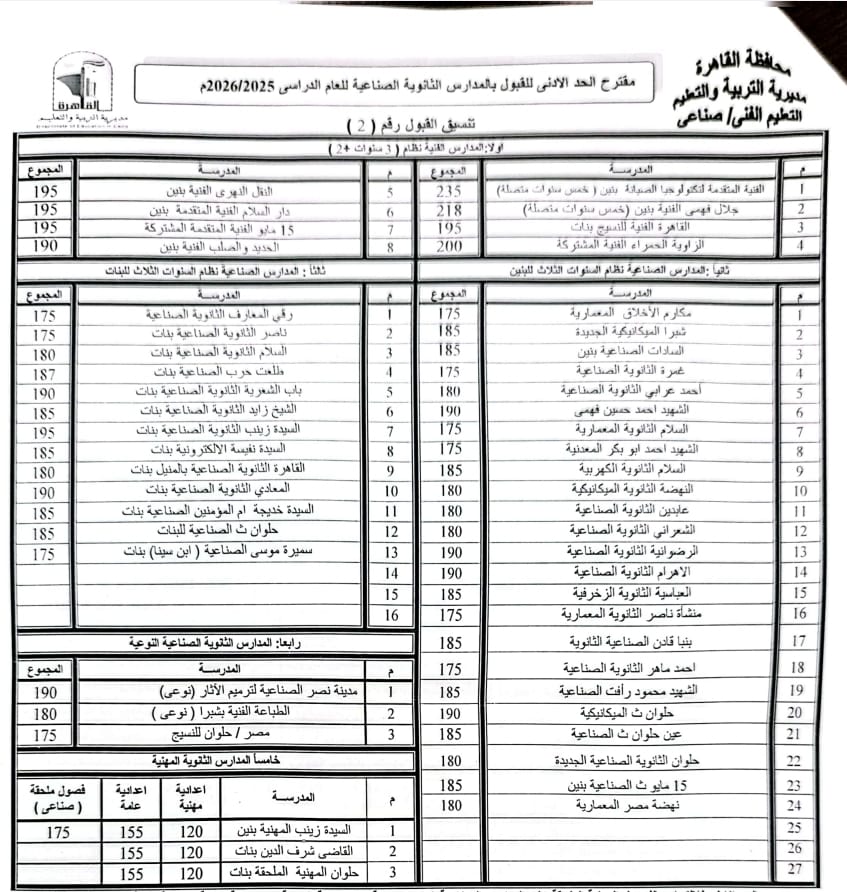 محافظة القاهرة
مديرية التربية والتعليم
التعليم الفنى/ صناعى
القاهرة
مديرية التربية والتعليم
مقترح الحد الادنى للقبول بالمدارس الثانوية الصناعية للعام الدراسى 2026/2025م
تنسيق القبول رقم ( 2 )
اولا:المدارس الفنية نظام ( 3 سنوات +2 )
م المدرسة المجموع م المدرسة المجموع
1 الفنية المتقدمة لتكنولوجيا الصيانة بنين ( خمس سنوات متصلة) 235 5 النقل النهرى الفنية بنين 195
2 جلال فهمى الفنية بنين (خمس سنوات متصلة) 218 6 دار السلام الفنية المتقدمة بنين 195
3 القاهرة الفنية للنسيج بنات 195 7 15 مايو الفنية المتقدمة المشتركة 195
4 الزاوية الحمراء الفنية المشتركة 200 8 الحديد والصلب الفنية بنين 190
ثانياً :المدارس الصناعية نظام السنوات الثلاث للبنين
م المدرسة المجموع
1 مكارم الأخلاق المعمارية 175
2 شبرا الميكانيكية الجديدة 185
3 السادات الصناعية بنين 185
4 غمرة الثانوية الصناعية 175
5 أحمد عرابي الثانوية الصناعية 180
6 الشهيد احمد حسين فهمى 190
7 السلام الثانوية المعمارية 175
8 الشهيد احمد ابو بكر المعدنية 175
9 السلام الثانوية الكهربية 185
10 النهضة الثانوية الميكانيكية 180
11 عابدين الثانوية الصناعية 180
12 الشعراني الثانوية الصناعية 180
13 الرضوانية الثانوية الصناعية 190
14 الاهرام الثانوية الصناعية 190
15 العباسية الثانوية الزخرفية 185
16 منشأة ناصر الثانوية المعمارية 175
17 بنبا قادن الصناعية الثانوية 185
18 احمد ماهر الثانوية الصناعية 175
19 الشهيد محمود رأفت الصناعية 185
20 حلوان ث الميكانيكية 190
21 عين حلوان ث الصناعية 185
22 حلوان الثانوية الصناعية الجديدة 180
23 15 مايو ث الصناعية بنين 185
24 نهضة مصر المعمارية 180
25
26
27
ثالثاً : المدارس الصناعية نظام السنوات الثلاث للبنات
م المدرسة المجموع
1 رقي المعارف الثانوية الصناعية 175
2 ناصر الثانوية الصناعية بنات 175
3 السلام الثانوية الصناعية بنات 180
4 طلعت حرب الصناعية بنات 187
5 باب الشعرية الثانوية الصناعية بنات 190
6 الشيخ زايد الثانوية الصناعية بنات 185
7 السيدة زينب الثانوية الصناعية بنات 195
8 السيدة نفيسة الالكترونية بنات 185
9 القاهرة الثانوية الصناعية بالمنيل بنات 180
10 المعادي الثانوية الصناعية بنات 190
11 السيدة خديجة ام المؤمنين الصناعية بنات 185
12 حلوان ث الصناعية للبنات 185
13 سميرة موسى الصناعية ( ابن سينا) بنات 175
14
15
16
رابعا: المدارس الثانوية الصناعية النوعية
م المدرسة المجموع
1 مدينة نصر الصناعية لترميم الآثار (نوعى) 190
2 الطباعة الفنية بشبرا ( نوعى ) 180
3 مصر / حلوان للنسيج 175
خامساً المدارس الثانوية المهنية
م المدرسة اعدادية مهنية اعدادية عامة فصول ملحقة ( صناعى )
1 السيدة زينب المهنية بنين 120 155 175
2 القاضى شرف الدين بنات 120 155
3 حلوان المهنية الملحقة بنات 120 155